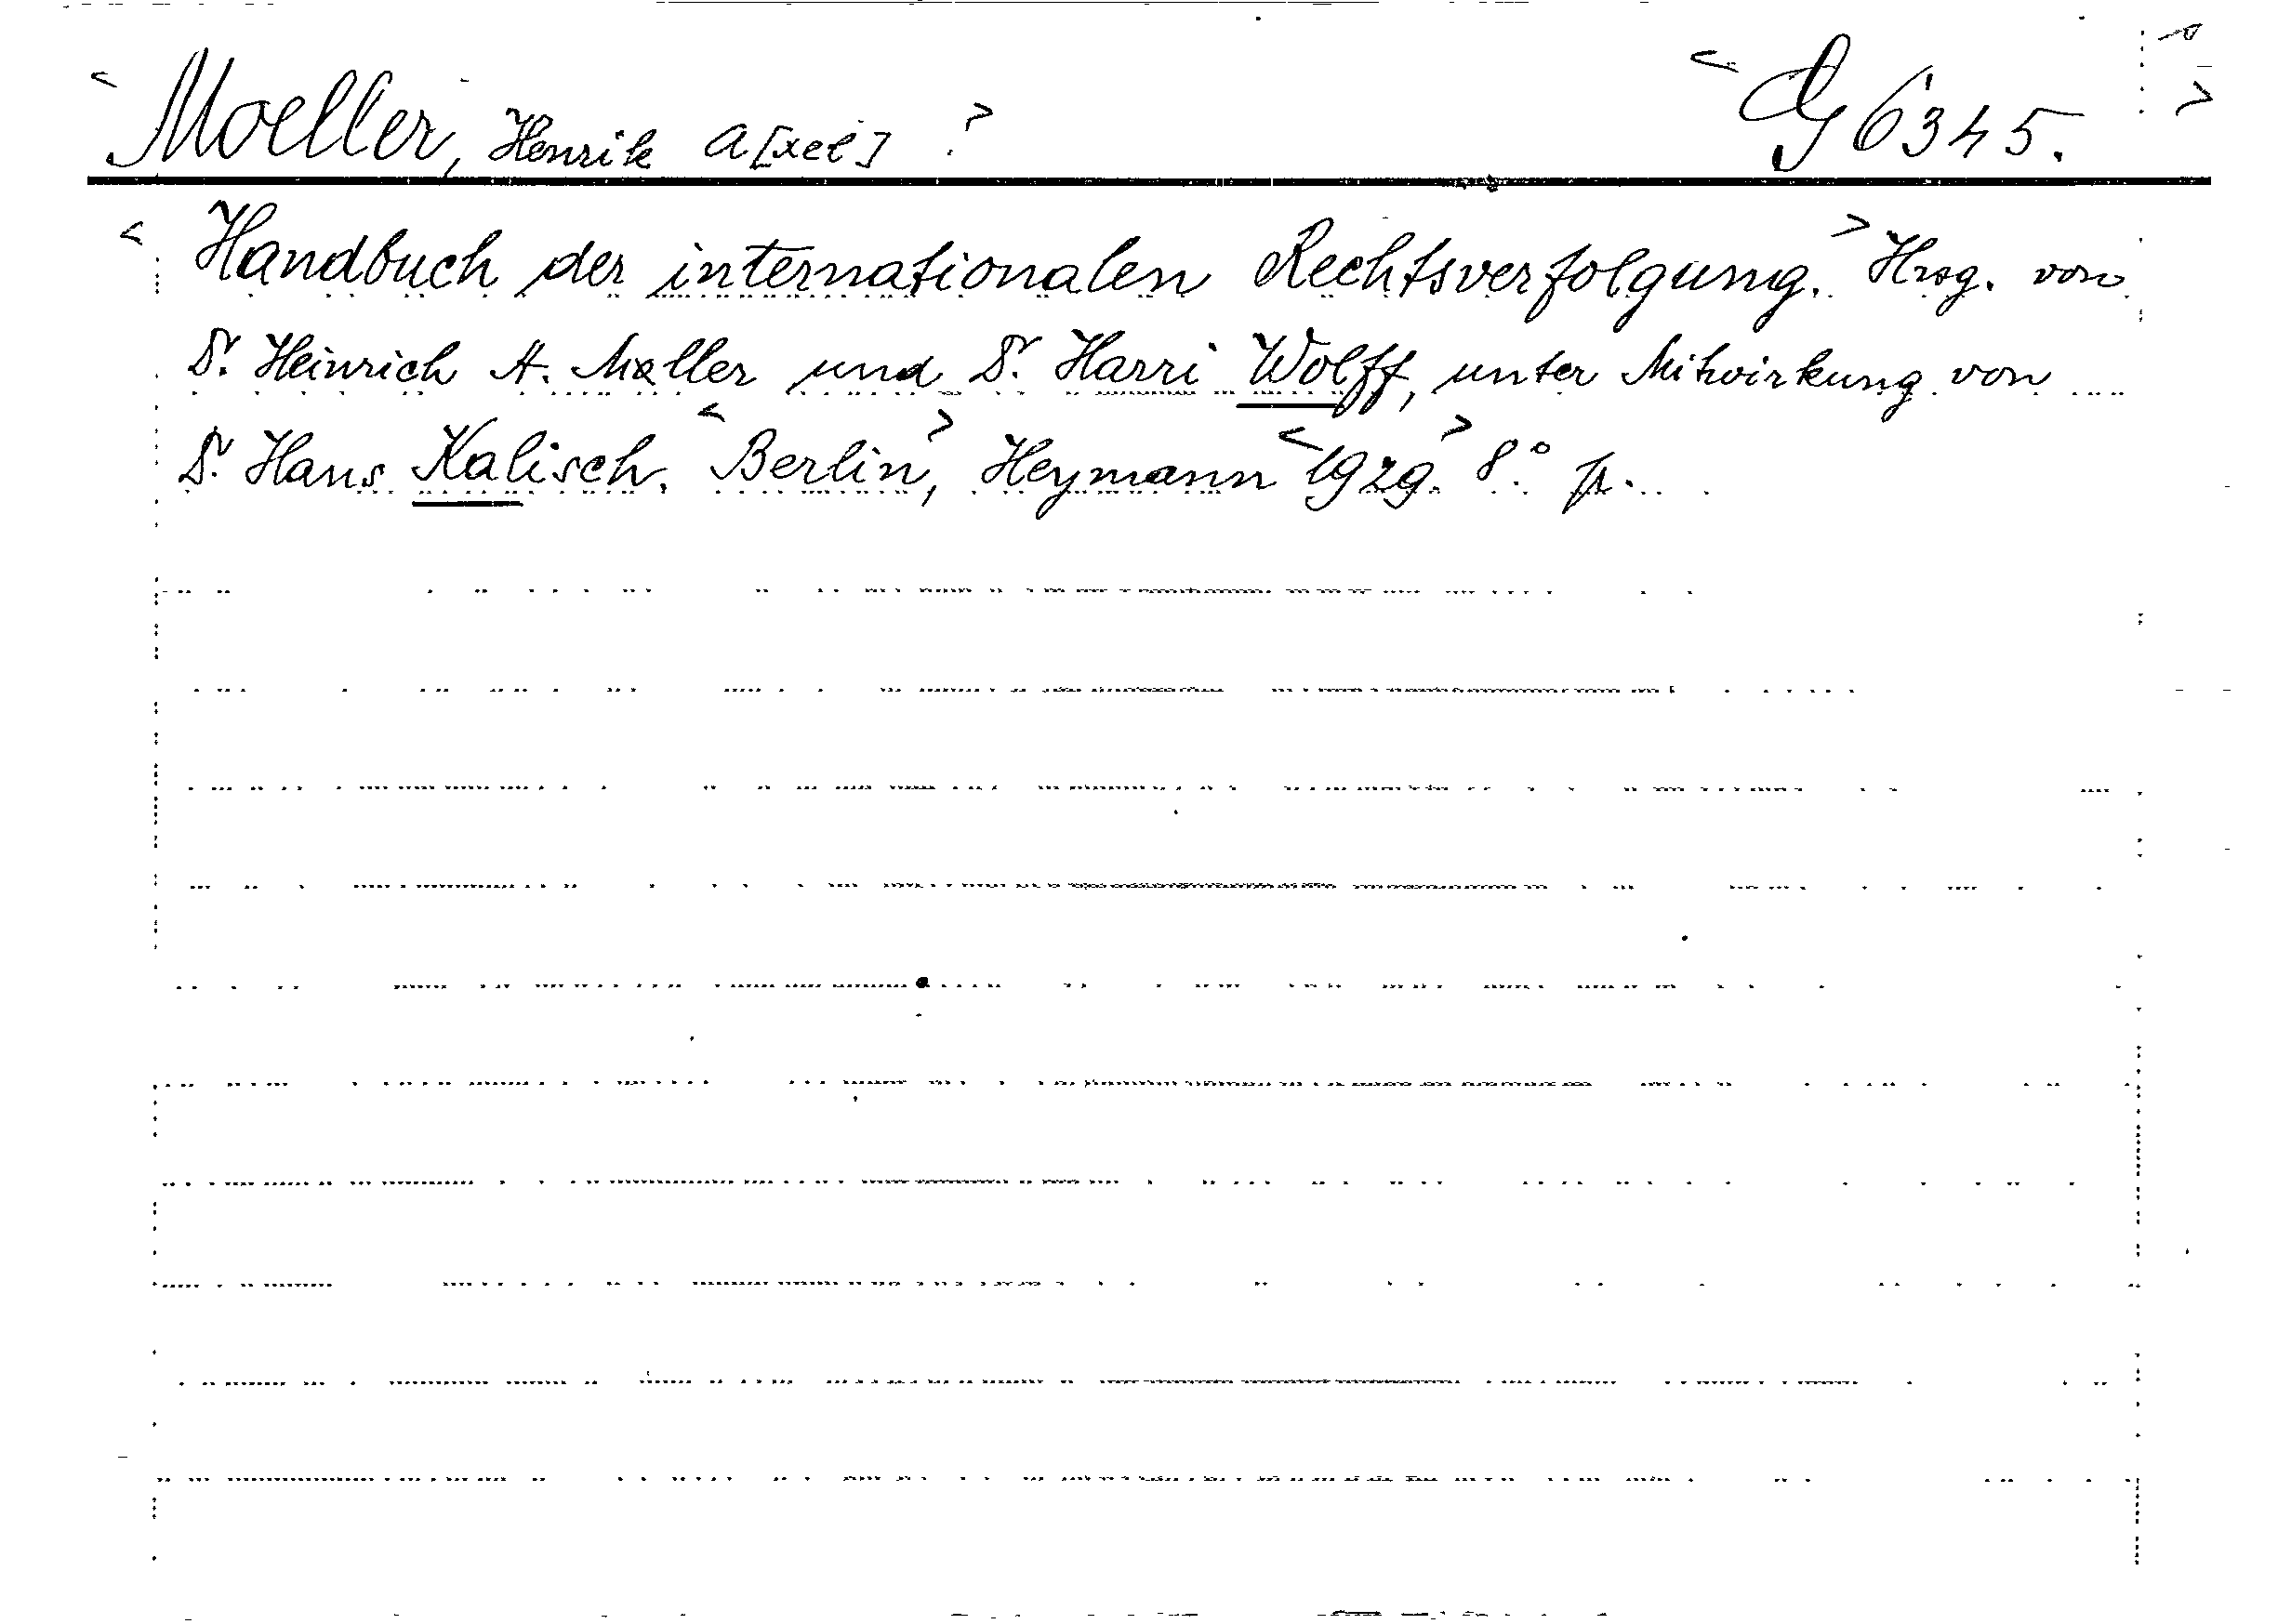 < Moeller, Henrik A[xel] > < G 6345. >
< Handbuch der internationalen Rechtsverfolgung. > Hrsg. von
Dr. Heinrich A. Mœller und Dr. Harri Wolff, unter Mitwirkung von
Dr. Hans Kalisch. < Berlin, > Heymann < 1929. > 8° fr.